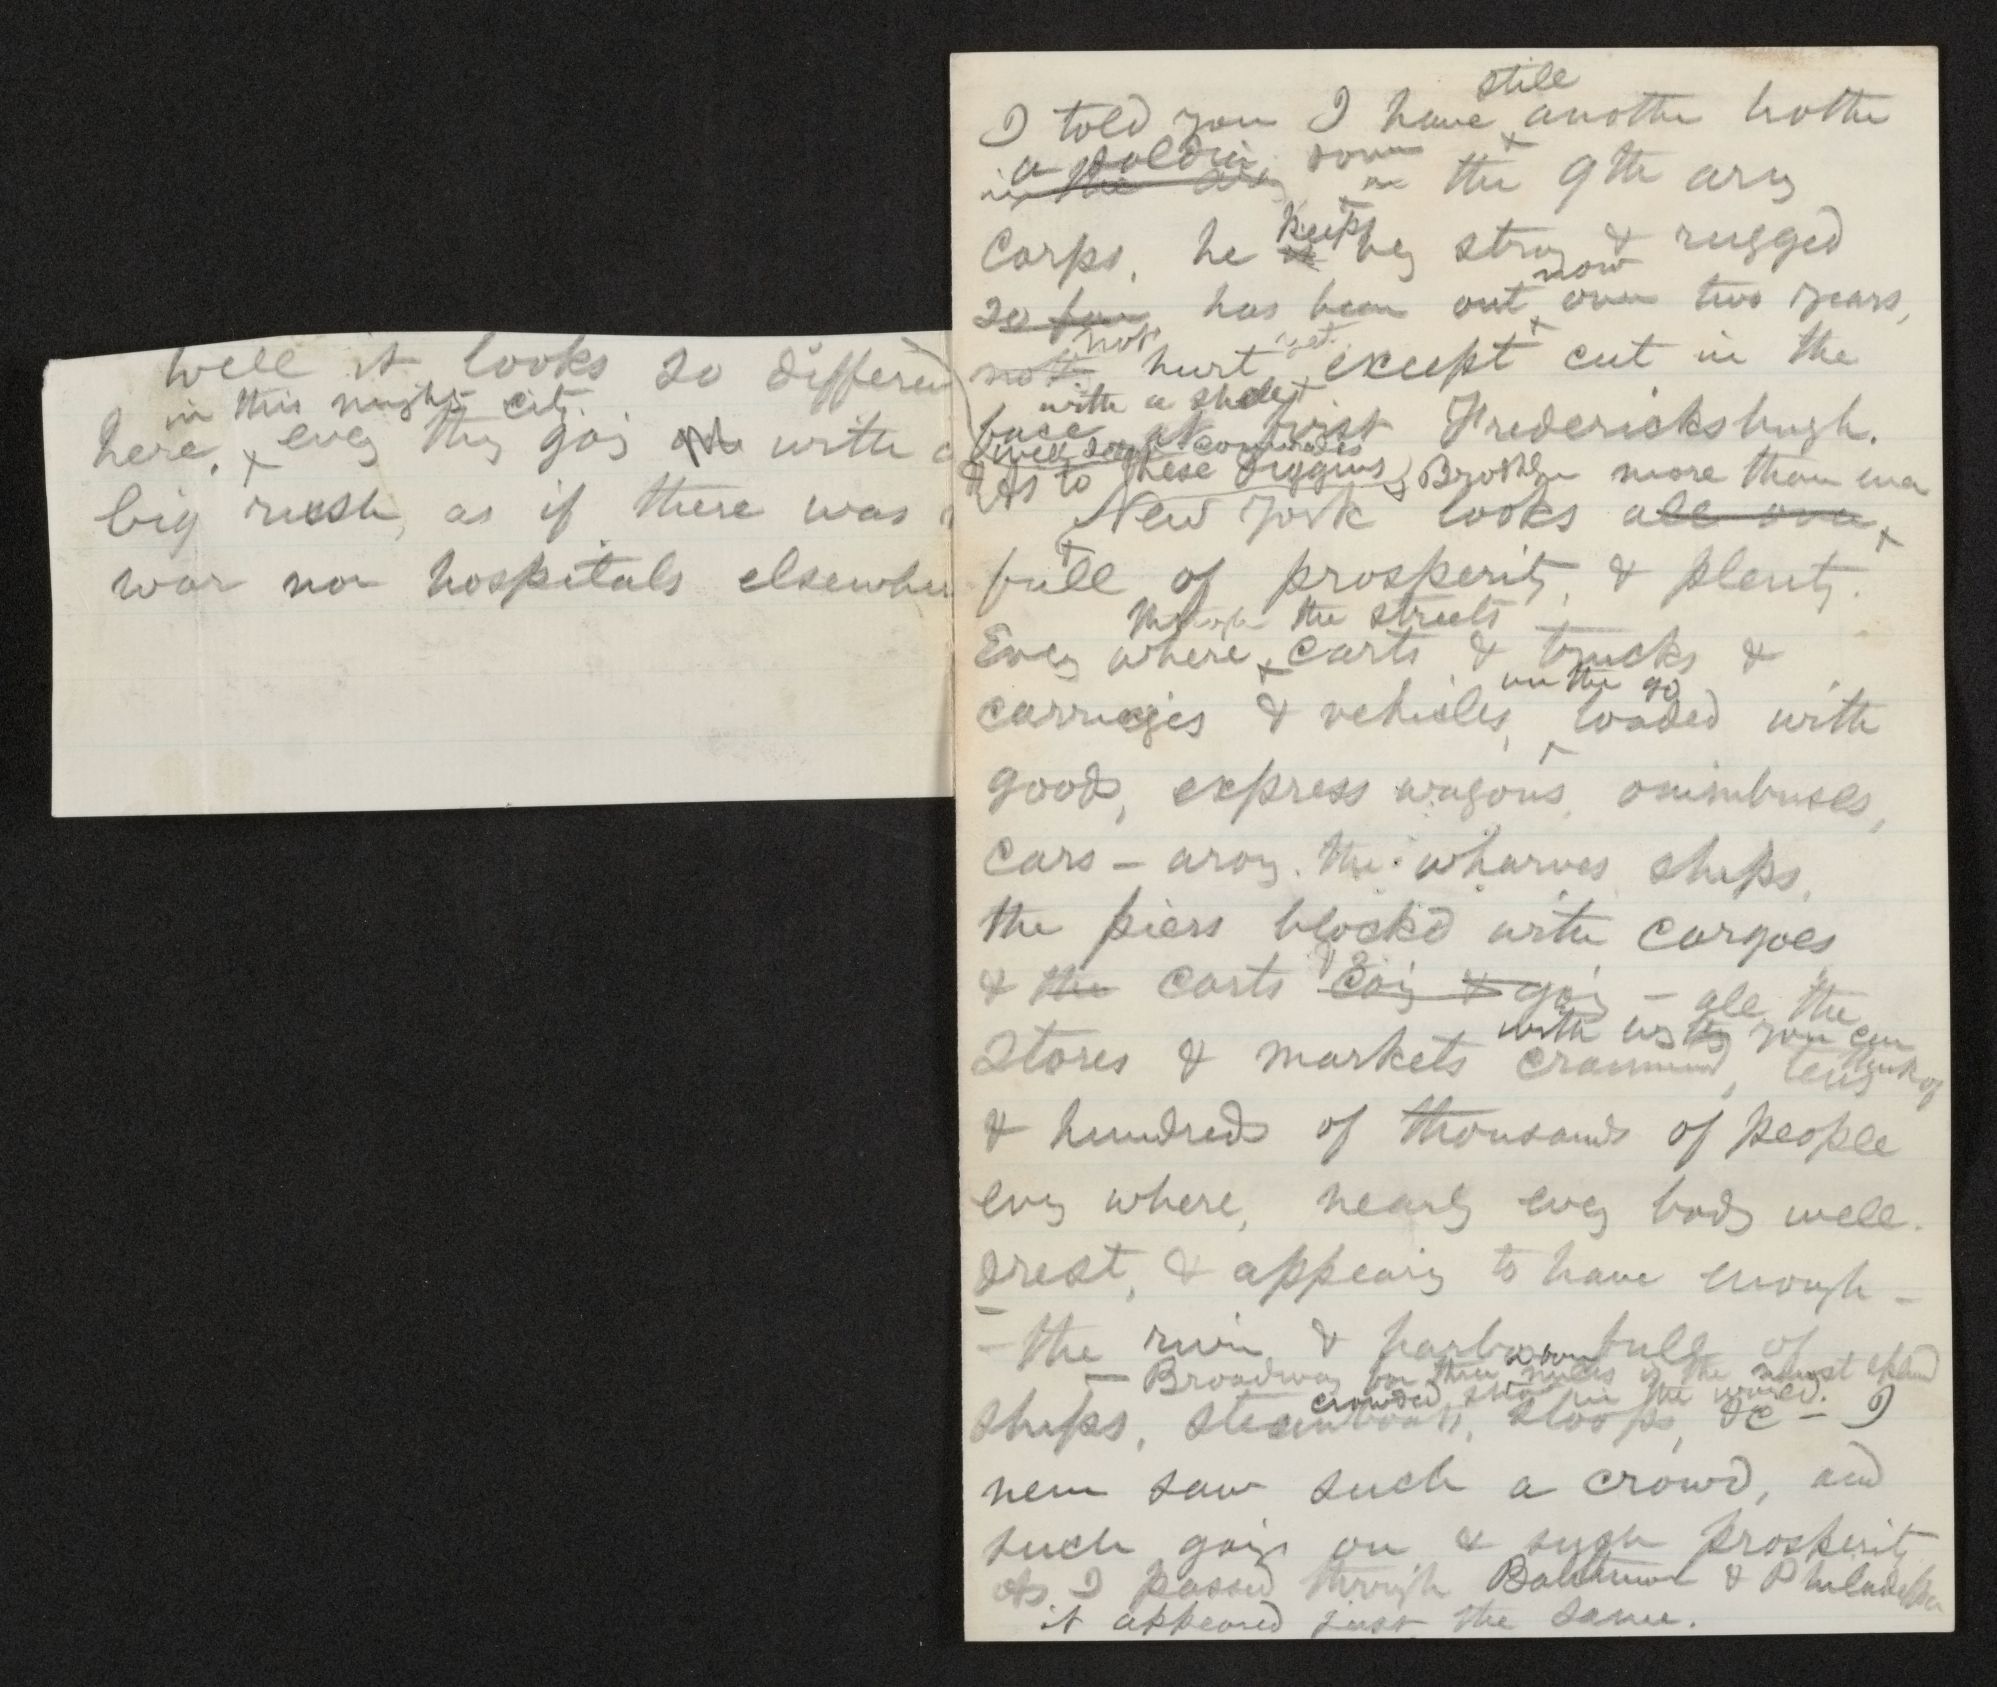 well it looks so differen
in this mighty city
here, every thing going on with a
big rush, as if there was
war nor hospitals elsewhe
still
I told you I have another brother
a soldier, down
in the army in the 9th army
Corps. he keeps very strong & rugged
now
so far, has been out over two years,
not yet
not hurt, except cut in the
with a shell
face at first Fredericksburgh.
Well, dear comrades
& As to these diggings, Brooklyn more than ever
New York looks all over,
full of prosperity, & plenty.
through the streets
Every where, carts & trucks &
on the go
carriages & vehicles, loaded with
goods, express wagons, omnibuses,
cars – along the wharves ships,
the piers block'd with cargoes
& the carts & Coming & going – all the
with every thing you can
Stores & markets crammed, tens
think of
& hundreds of thousands of people
every where, nearly every body well-
drest, & appearing to have enough –
– the river & harbor full of
– Broadway for three miles is the most
crowded show in the world.
ships, steamboats, sloops, &c – I
never saw such a crowd, and
such goings on & such prosperity
As I passed through Baltimore & Philadelphia
it appeared just the same.